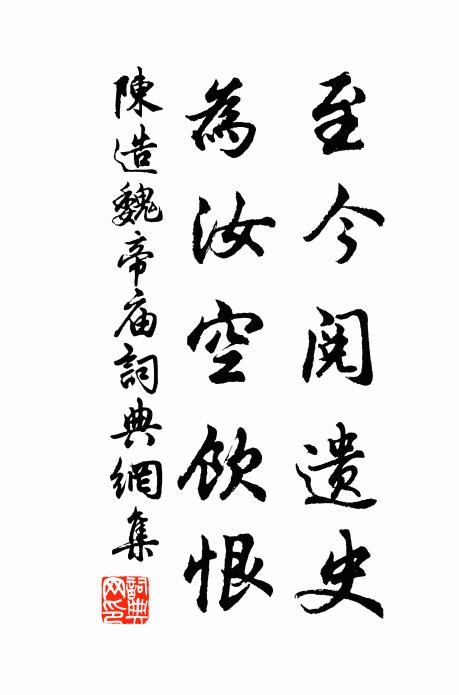 至今閱遺史
為汝空飲恨
陳造魏帝廟詞典網集
詞典
网印